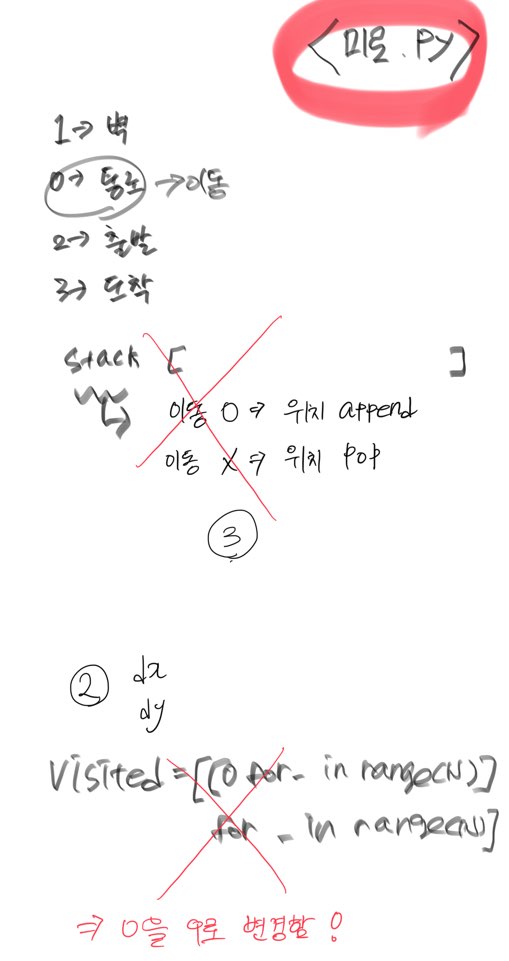 <미로.py>
1→ 벽
0→ 통로 → 이동
2→ 출발
3→ 도착
Stack [ ]
이동 O ⇒ 위치 append
이동 X ⇒ 위치 pop
③
② dx
dy
visited = [[0 for _ in range(N)]
for _ in range(N)]
⇒ 0을 9로 변경함!